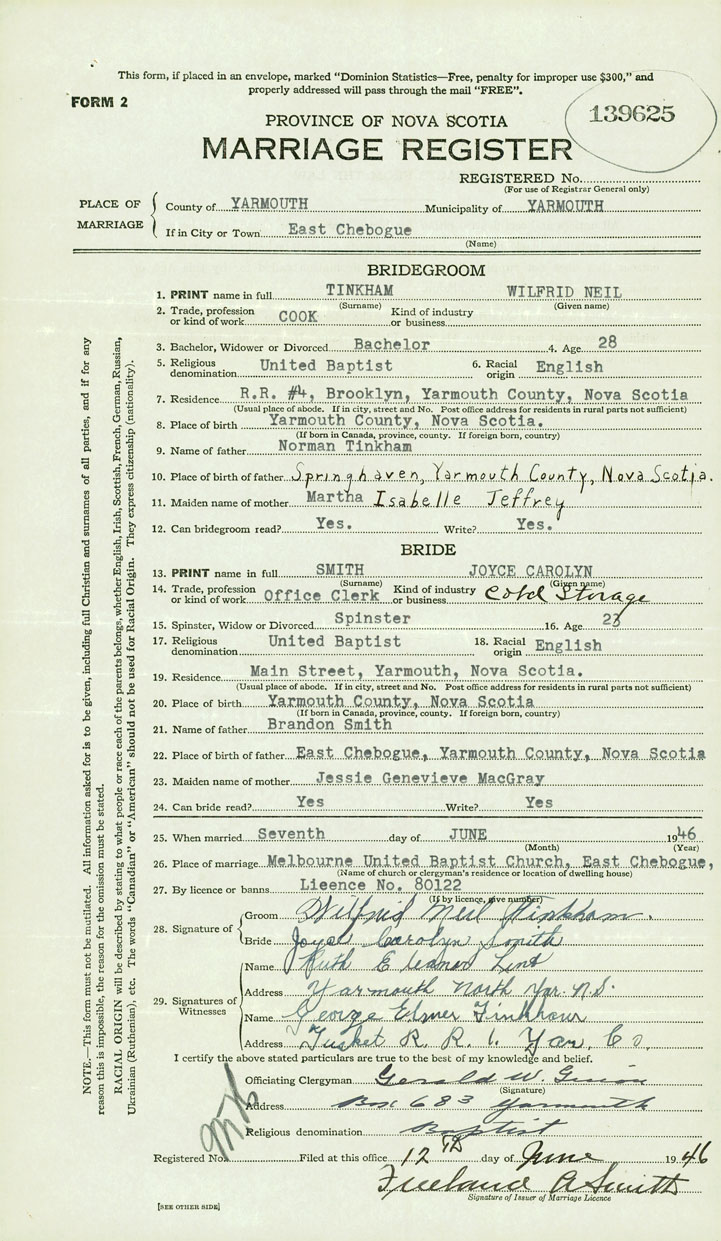 This form, if placed in an envelope, marked "Dominion Statistics—Free, penalty for improper use $300," and
properly addressed will pass through the mail "FREE".
FORM 2
139625
PROVINCE OF NOVA SCOTIA
MARRIAGE REGISTER
REGISTERED No.
(For use of Registrar General only)
PLACE OF MARRIAGE
County of YARMOUTH Municipality of YARMOUTH
If in City or Town East Chebogue
(Name)
BRIDEGROOM
1. PRINT name in full TINKHAM WILFRID NEIL
(Surname) (Given name)
2. Trade, profession or kind of work COOK Kind of industry or business
3. Bachelor, Widower or Divorced Bachelor 4. Age 28
5. Religious denomination United Baptist 6. Racial origin English
7. Residence R.R. #4, Brooklyn, Yarmouth County, Nova Scotia
(Usual place of abode. If in city, street and No. Post office address for residents in rural parts not sufficient)
8. Place of birth Yarmouth County, Nova Scotia.
(If born in Canada, province, county. If foreign born, country)
9. Name of father Norman Tinkham
10. Place of birth of father Springhaven, Yarmouth County, Nova Scotia.
11. Maiden name of mother Martha Isabelle Jeffrey
12. Can bridegroom read? Yes. Write? Yes.
BRIDE
13. PRINT name in full SMITH JOYCE CAROLYN
(Surname) (Given name)
14. Trade, profession or kind of work Office Clerk Kind of industry or business Cold Storage
15. Spinster, Widow or Divorced Spinster 16. Age 23
17. Religious denomination United Baptist 18. Racial origin English
19. Residence Main Street, Yarmouth, Nova Scotia.
(Usual place of abode. If in city, street and No. Post office address for residents in rural parts not sufficient)
20. Place of birth Yarmouth County, Nova Scotia
(If born in Canada, province, county. If foreign born, country)
21. Name of father Brandon Smith
22. Place of birth of father East Chebogue, Yarmouth County, Nova Scotia
23. Maiden name of mother Jessie Genevieve MacGray
24. Can bride read? Yes Write? Yes
25. When married Seventh day of JUNE 1946
(Month) (Year)
26. Place of marriage Melbourne United Baptist Church, East Chebogue,
(Name of church or clergyman's residence or location of dwelling house)
27. By licence or banns Licence No. 80122
(If by licence, give number)
28. Signature of
Groom Wilfrid Neil Tinkham.
Bride Joyce Carolyn Smith
29. Signatures of Witnesses
Name Ruth Eleanor
Address Yarmouth North Yar. N.S.
Name George Elmer Tinkham
Address Tusket R. R. 1. Yar. Co.
I certify the above stated particulars are true to the best of my knowledge and belief.
Officiating Clergyman Gerald W.
(Signature)
Address Box 683 Yarmouth
Religious denomination Baptist
Registered No. Filed at this office 12TH day of June 1946
Freeland A Smith
Signature of Issuer of Marriage Licence
[SEE OTHER SIDE]
NOTE.—This form must not be mutilated. All information asked for is to be given, including full Christian and surnames of all parties, and if for any
reason this is impossible, the reason for the omission must be stated.
RACIAL ORIGIN will be described by stating to what people or race each of the parents belongs, whether English, Irish, Scottish, French, German, Russian,
Ukrainian (Ruthenian), etc. The words "Canadian" or "American" should not be used for Racial Origin. They express citizenship (nationality).